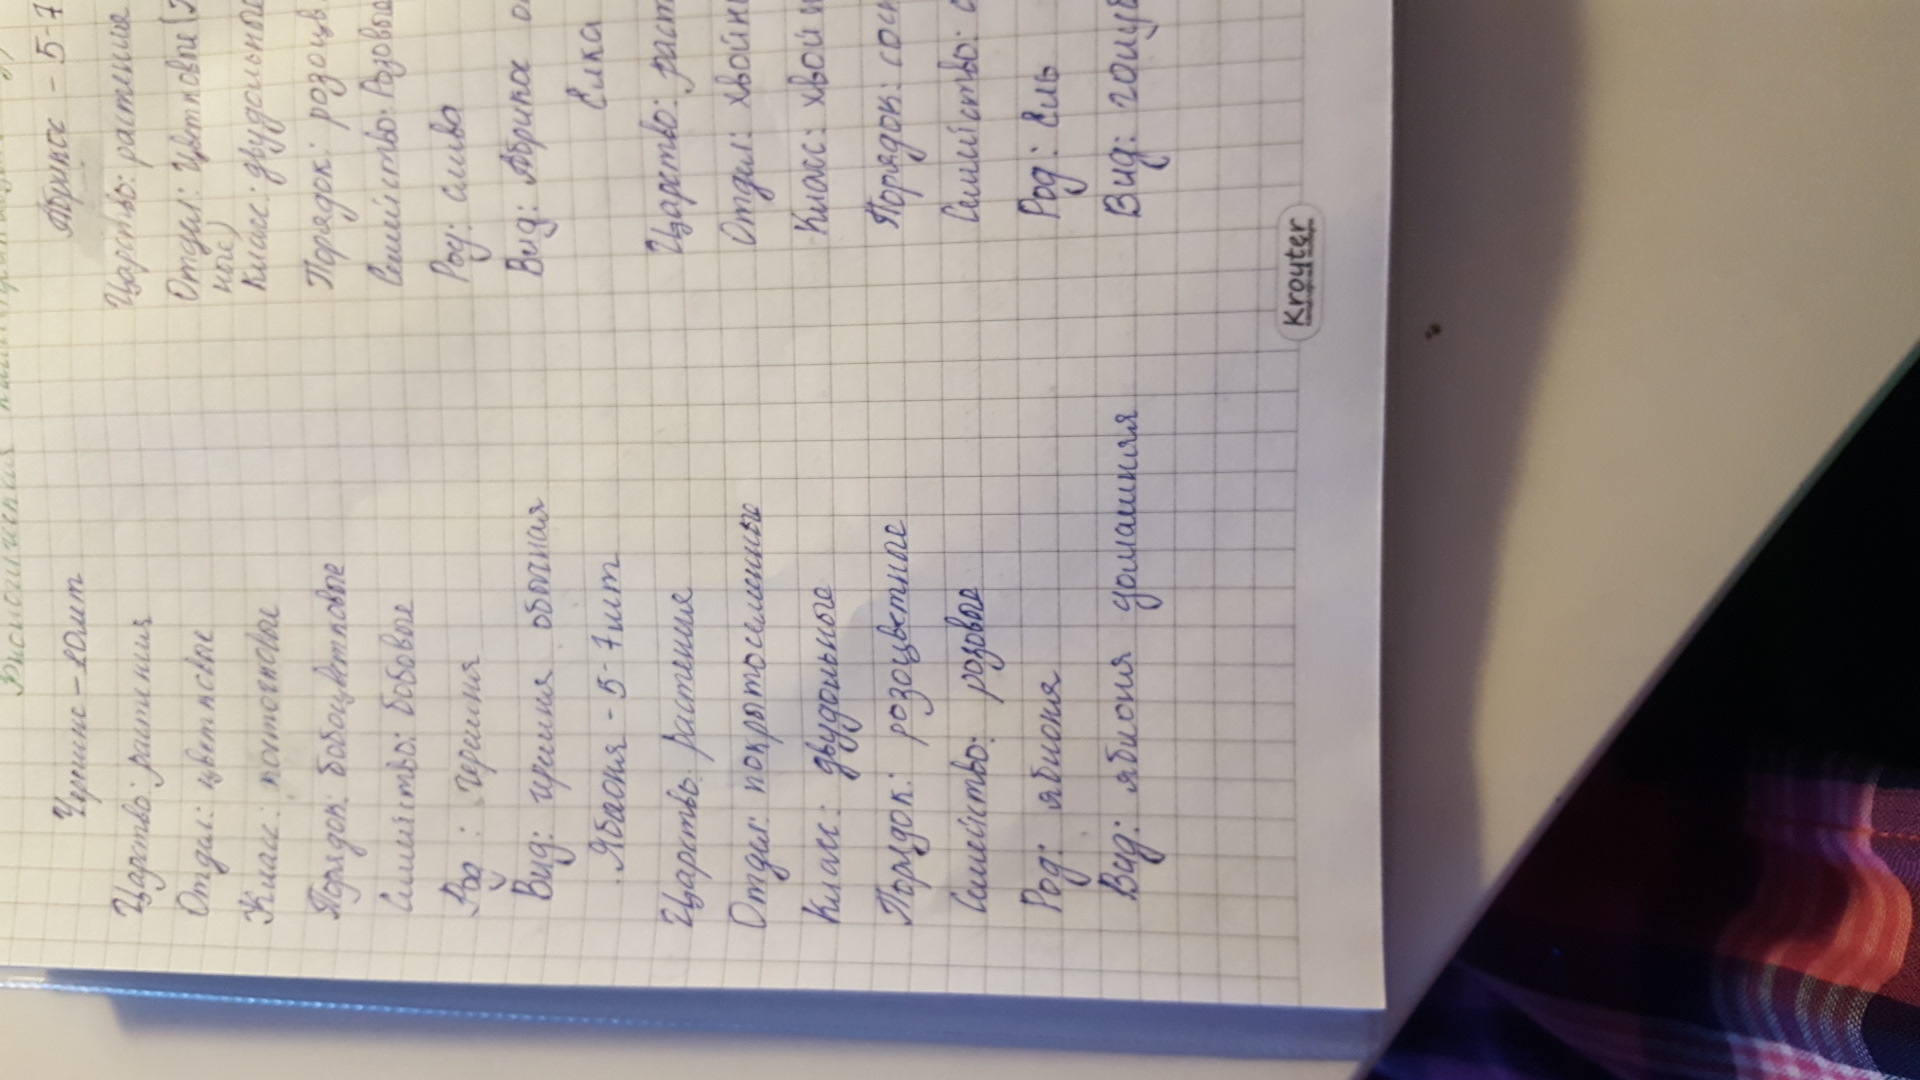 Биологическая
Черешня - 20шт
Царство: растения
Отдел: цветковые
Класс:
Порядок: бобоцветковые
Семейство: бобовые
Род: черешня
Вид: черешня обычная
Яблоня - 5-7шт
Царство: растение
Отдел: покрытосеменные
Класс: двудольные
Порядок: розоцветные
Семейство: розовые
Род: яблоня
Вид: яблоня домашняя
Абрикос - 5-7
Царство: растение
Отдел: Цветковые
ные)
Класс: двудольные
Порядок: розоцв
Семейство: Розовые
Род: слива
Вид: Абрикос о
Елка
Царство: раст
Отдел: хвойн
Класс: хвойн
Порядок: сосн
Семейство: с
Род: Ель
Вид: голуб
Kroyter